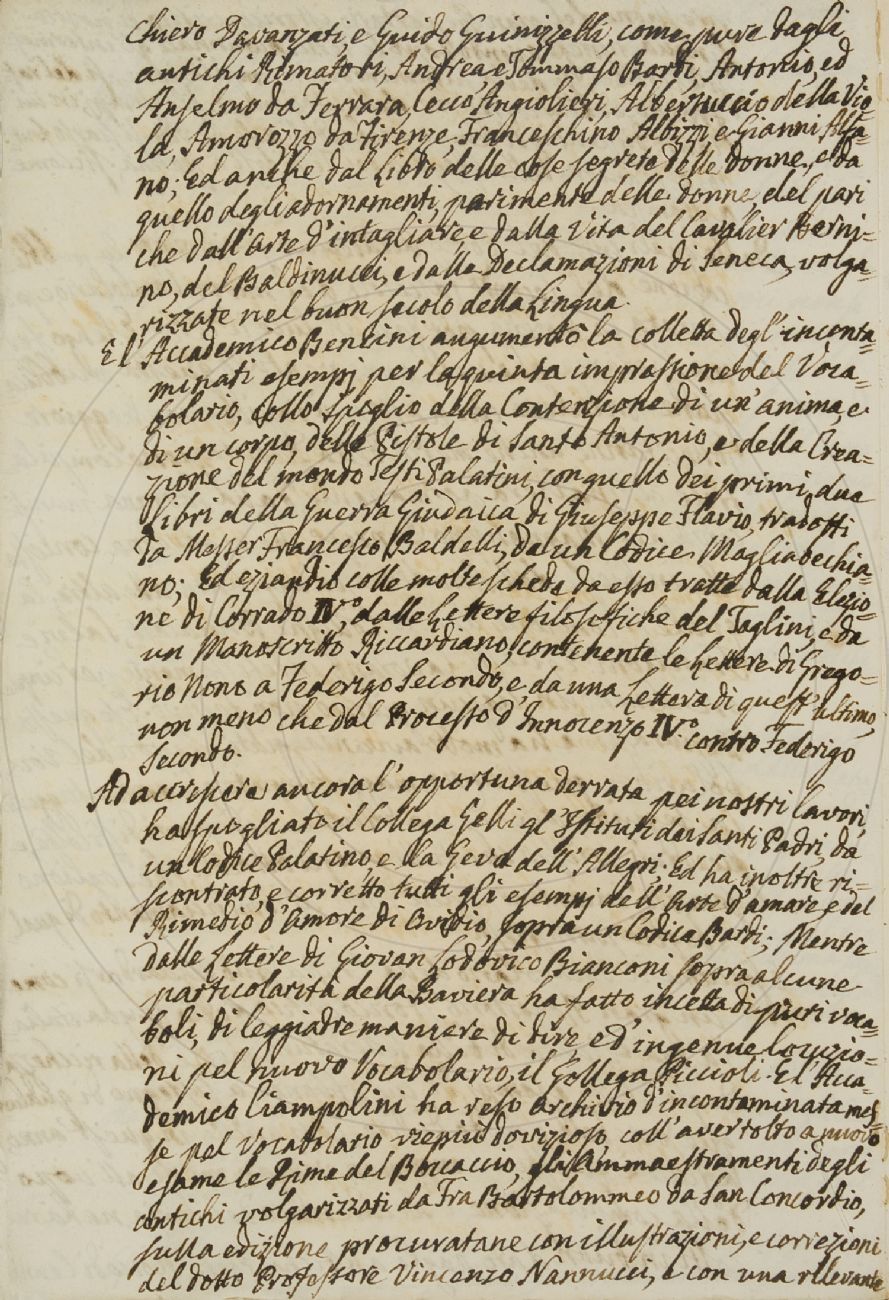 Chiaro Davanzati, e Guido Guinizzelli, come pure dagli
antichi Rimatori, Andrea e Tommaso Bardi, Antonio, ed
Anselmo da Ferrara, Cecco Angiolieri, Albertuccio della Vio=
la, Amorozzo da Firenze, Franceschino Albizzi e Gianni Alfa=
no; Ed anche dal Libro delle cose segrete delle donne, e da
quello degli adornamenti parimente delle donne, del pari
che dall'Arte d'intagliare e dalla Vita del Cavalier Berni=
no, del Baldinucci, e dalle Declamazioni di Seneca, volga=
rizzate nel buon secolo della Lingua.
E l'Accademico Bencini augumentò la colletta degl'inconta=
minati esempj per la quinta impressione del Voca=
bolario, collo spoglio della Contenzione di un'anima, e
di un corpo, delle Pistole di Santo Antonio, e della Crea=
zione del mondo Testi Palatini, con quello dei primi due
Libri della Guerra Giudaica di Giuseppe Flavio, tradotti
da Messer Francesco Baldelli, da un Codice Magliabechia=
no; Ed eziandio colle molte schede da esso tratte dalla Elezio=
ne di Corrado IV.º, dalle Lettere filosofiche del Taglini, e da
un Manoscritto Riccardiano, contenente le Lettere di Grego=
rio Nono a Federigo Secondo, e da una Lettera di quest'ultimo,
non meno che dal Processo d'Innocenzo IV.º contro Federigo
Secondo.
Ad accrescere ancora l'opportuna derrata pei nostri lavori,
ha spogliato il Collega Gelli gl'Istituti dei Santi Padri, da
un Codice Palatino, e la Geva dell'Allegri; Ed ha inoltre ri=
scontrato, e corretto tutti gli esempj dell'Arte d'amare, e del
Rimedio d'Amore di Ovidio, sopra un Codice Bardi; Mentre
dalle Lettere di Giovan Lodovico Bianconi sopra alcune
particolarità della Baviera ha fatto incetta di puri voca=
boli, di leggiadre maniere di dire e d'ingenue locuzio=
ni pel nuovo Vocabolario, il Collega Piccioli. E l'Acca=
demico Ciampolini ha reso archivio d'incontaminata mes=
se pel Vocabolario viepiù dovizioso, coll'aver tolto a nuovo
esame le Rime del Boccaccio, gli Ammaestramenti degli
antichi volgarizzati da Fra Bartolommeo da San Concordio,
sulla edizione procuratane con illustrazioni, e correzioni
del dotto Professore Vincenzo Nannucci, e con una rilevante